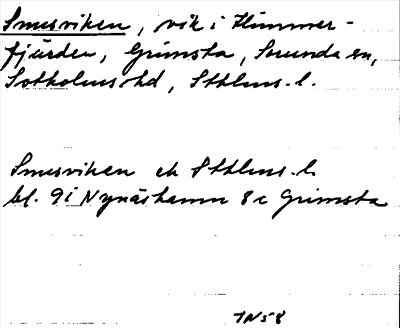 Smesviken, vik i Himmer-
fjärden, Grimsta, Sorunda sn,
Sotholms hd, Sthlms l.
Smesviken ek Sthlms l.
bl. 9 i Nynäshamn 8 c Grimsta
JN58